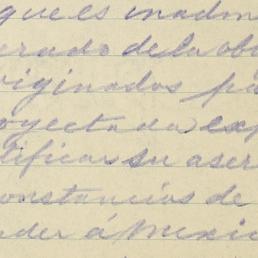 que es inadm
erado de la ob
riginados pa
oyectada exp
lificar su aser
constancias de
nder á Mexic